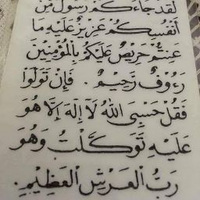 لَقَدْ جَاءَكُمْ رَسُولٌ مِنْ
أَنْفُسِكُمْ عَزِيزٌ عَلَيْهِ مَا
عَنِتُّمْ حَرِيصٌ عَلَيْكُمْ بِالْمُؤْمِنِينَ
رَءُوفٌ رَحِيمٌ . فَإِنْ تَوَلَّوْا
فَقُلْ حَسْبِيَ اللَّهُ لَا إِلَهَ إِلَّا هُوَ
عَلَيْهِ تَوَكَّلْتُ وَهُوَ
رَبُّ الْعَرْشِ الْعَظِيمِ .